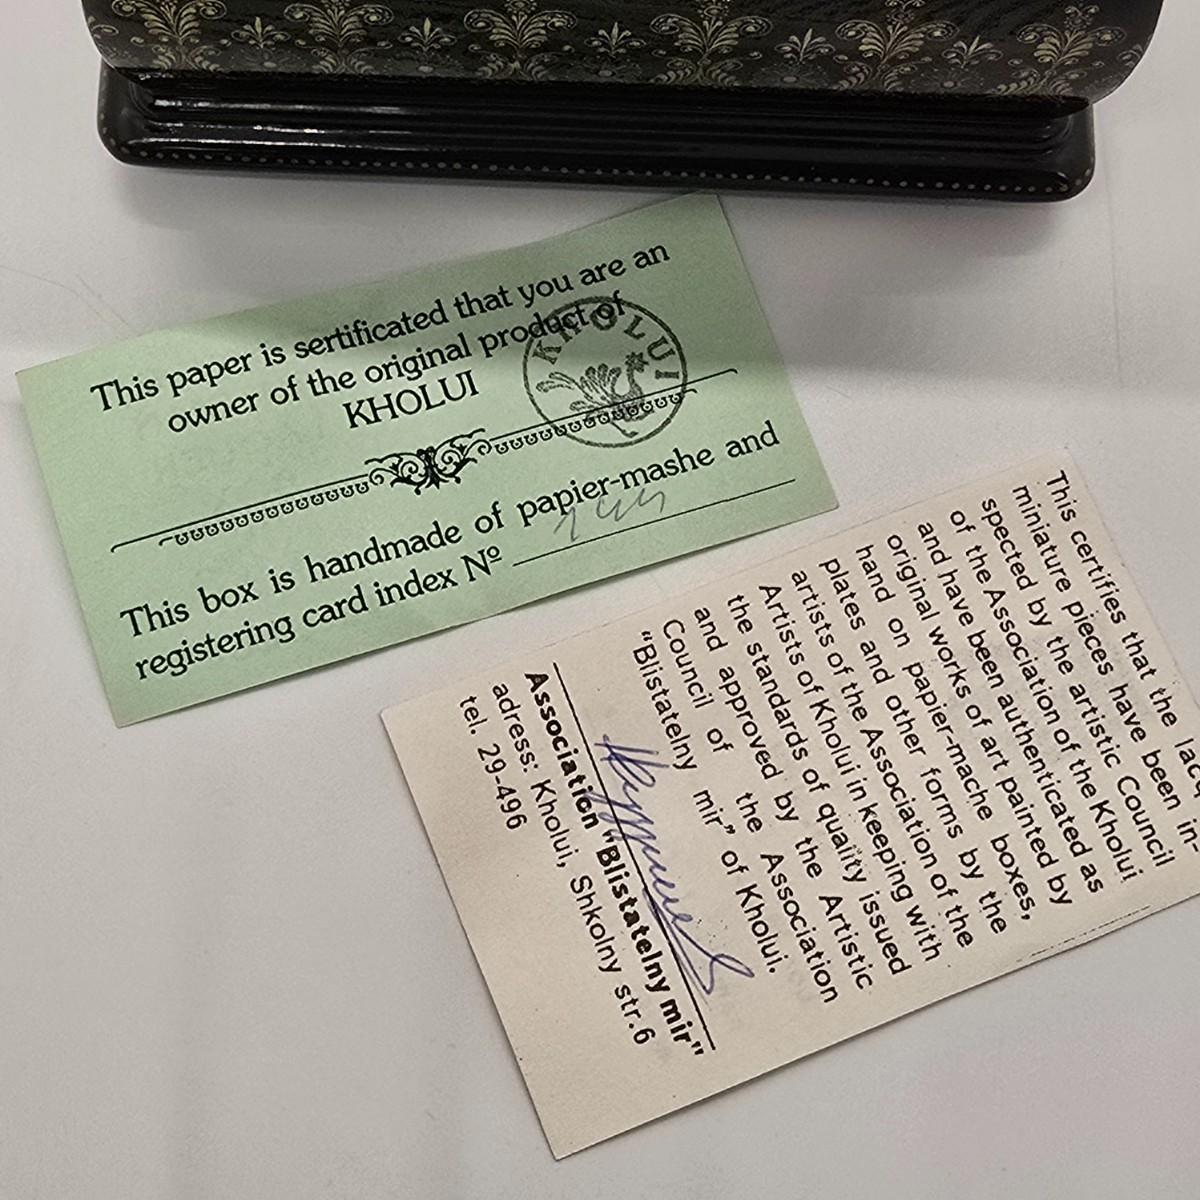 This paper is sertificated that you are an
owner of the original product of
KHOLUI
KHOLUI
This box is handmade of papier-mashe and
registering card index Nº
This certifies that the lacq
miniature pieces have been in-
spected by the artistic Council
of the Association of the Kholui
and have been authenticated as
original works of art painted by
hand on papier-mache boxes,
plates and other forms by the
artists of the Association of the
Artists of Kholui in keeping with
the standards of quality issued
and approved by the Artistic
Council of the Association
"Blistatelny mir" of Kholui.
Association "Blistatelny mir"
adress: Kholui, Shkolny str.6
tel. 29-496